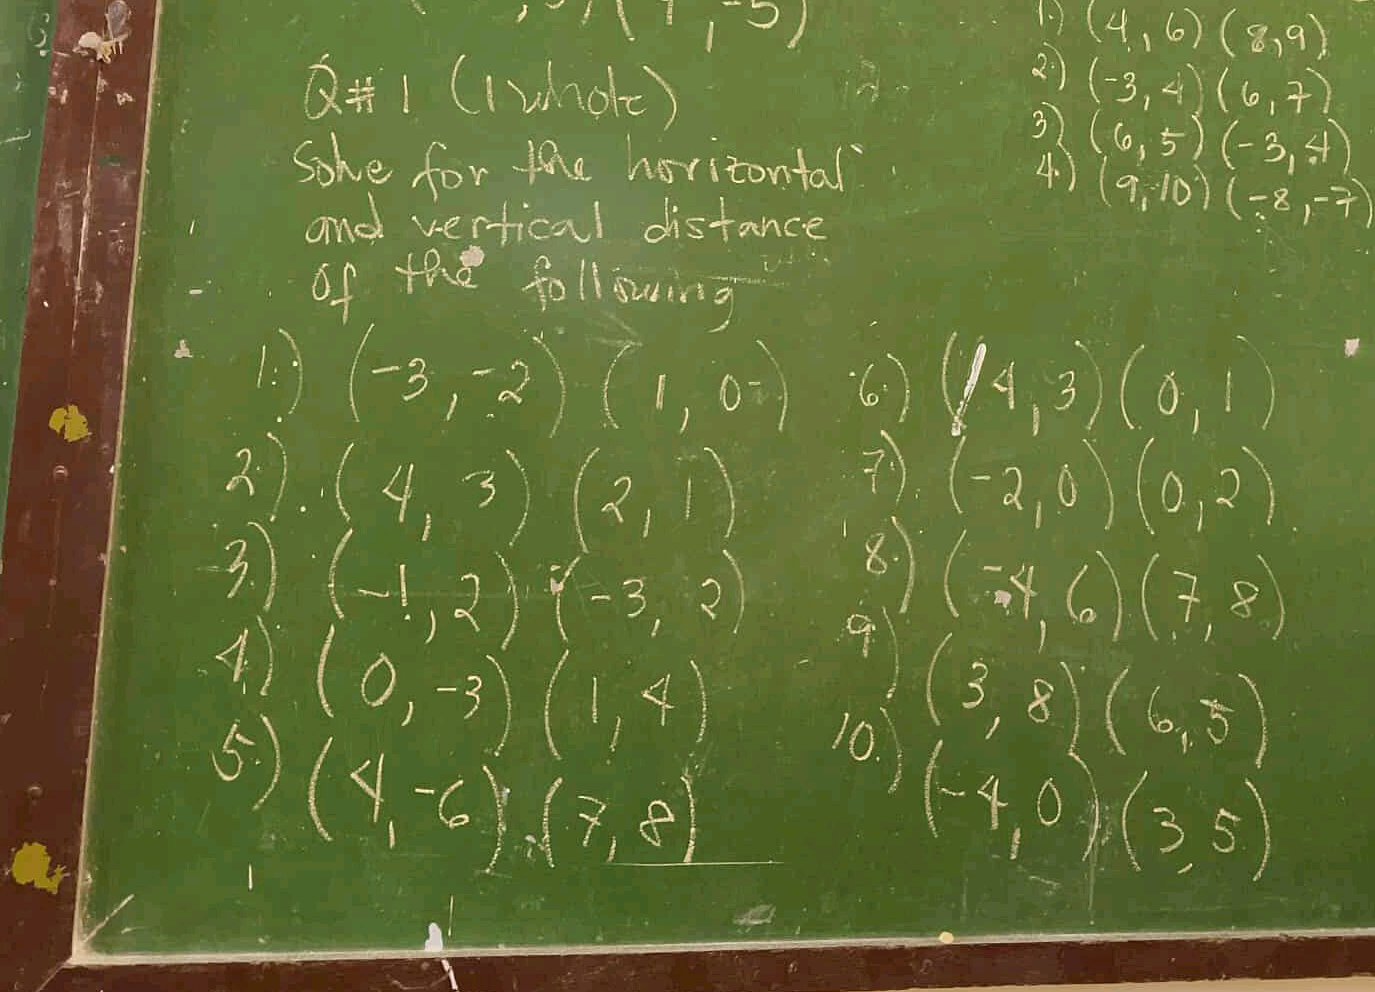 , -5)
Q#1 (1 whole)
Solve for the horizontal
and vertical distance
of the following
1.) (-3, -2) (1, 0)
2.) (4, 3) (2, 1)
3.) (-1, 2) (-3, 2)
4.) (0, -3) (1, 4)
5.) (4, -6) (7, 8)
6.) (4, 3) (0, 1)
7.) (-2, 0) (0, 2)
8.) (-4, 6) (7, 8)
9.) (3, 8) (6, 5)
10.) (-4, 0) (3, 5)
1.) (4, 6) (8, 9)
2.) (-3, 4) (6, 7)
3.) (6, 5) (-3, 4)
4.) (9, 10) (-8, -7)